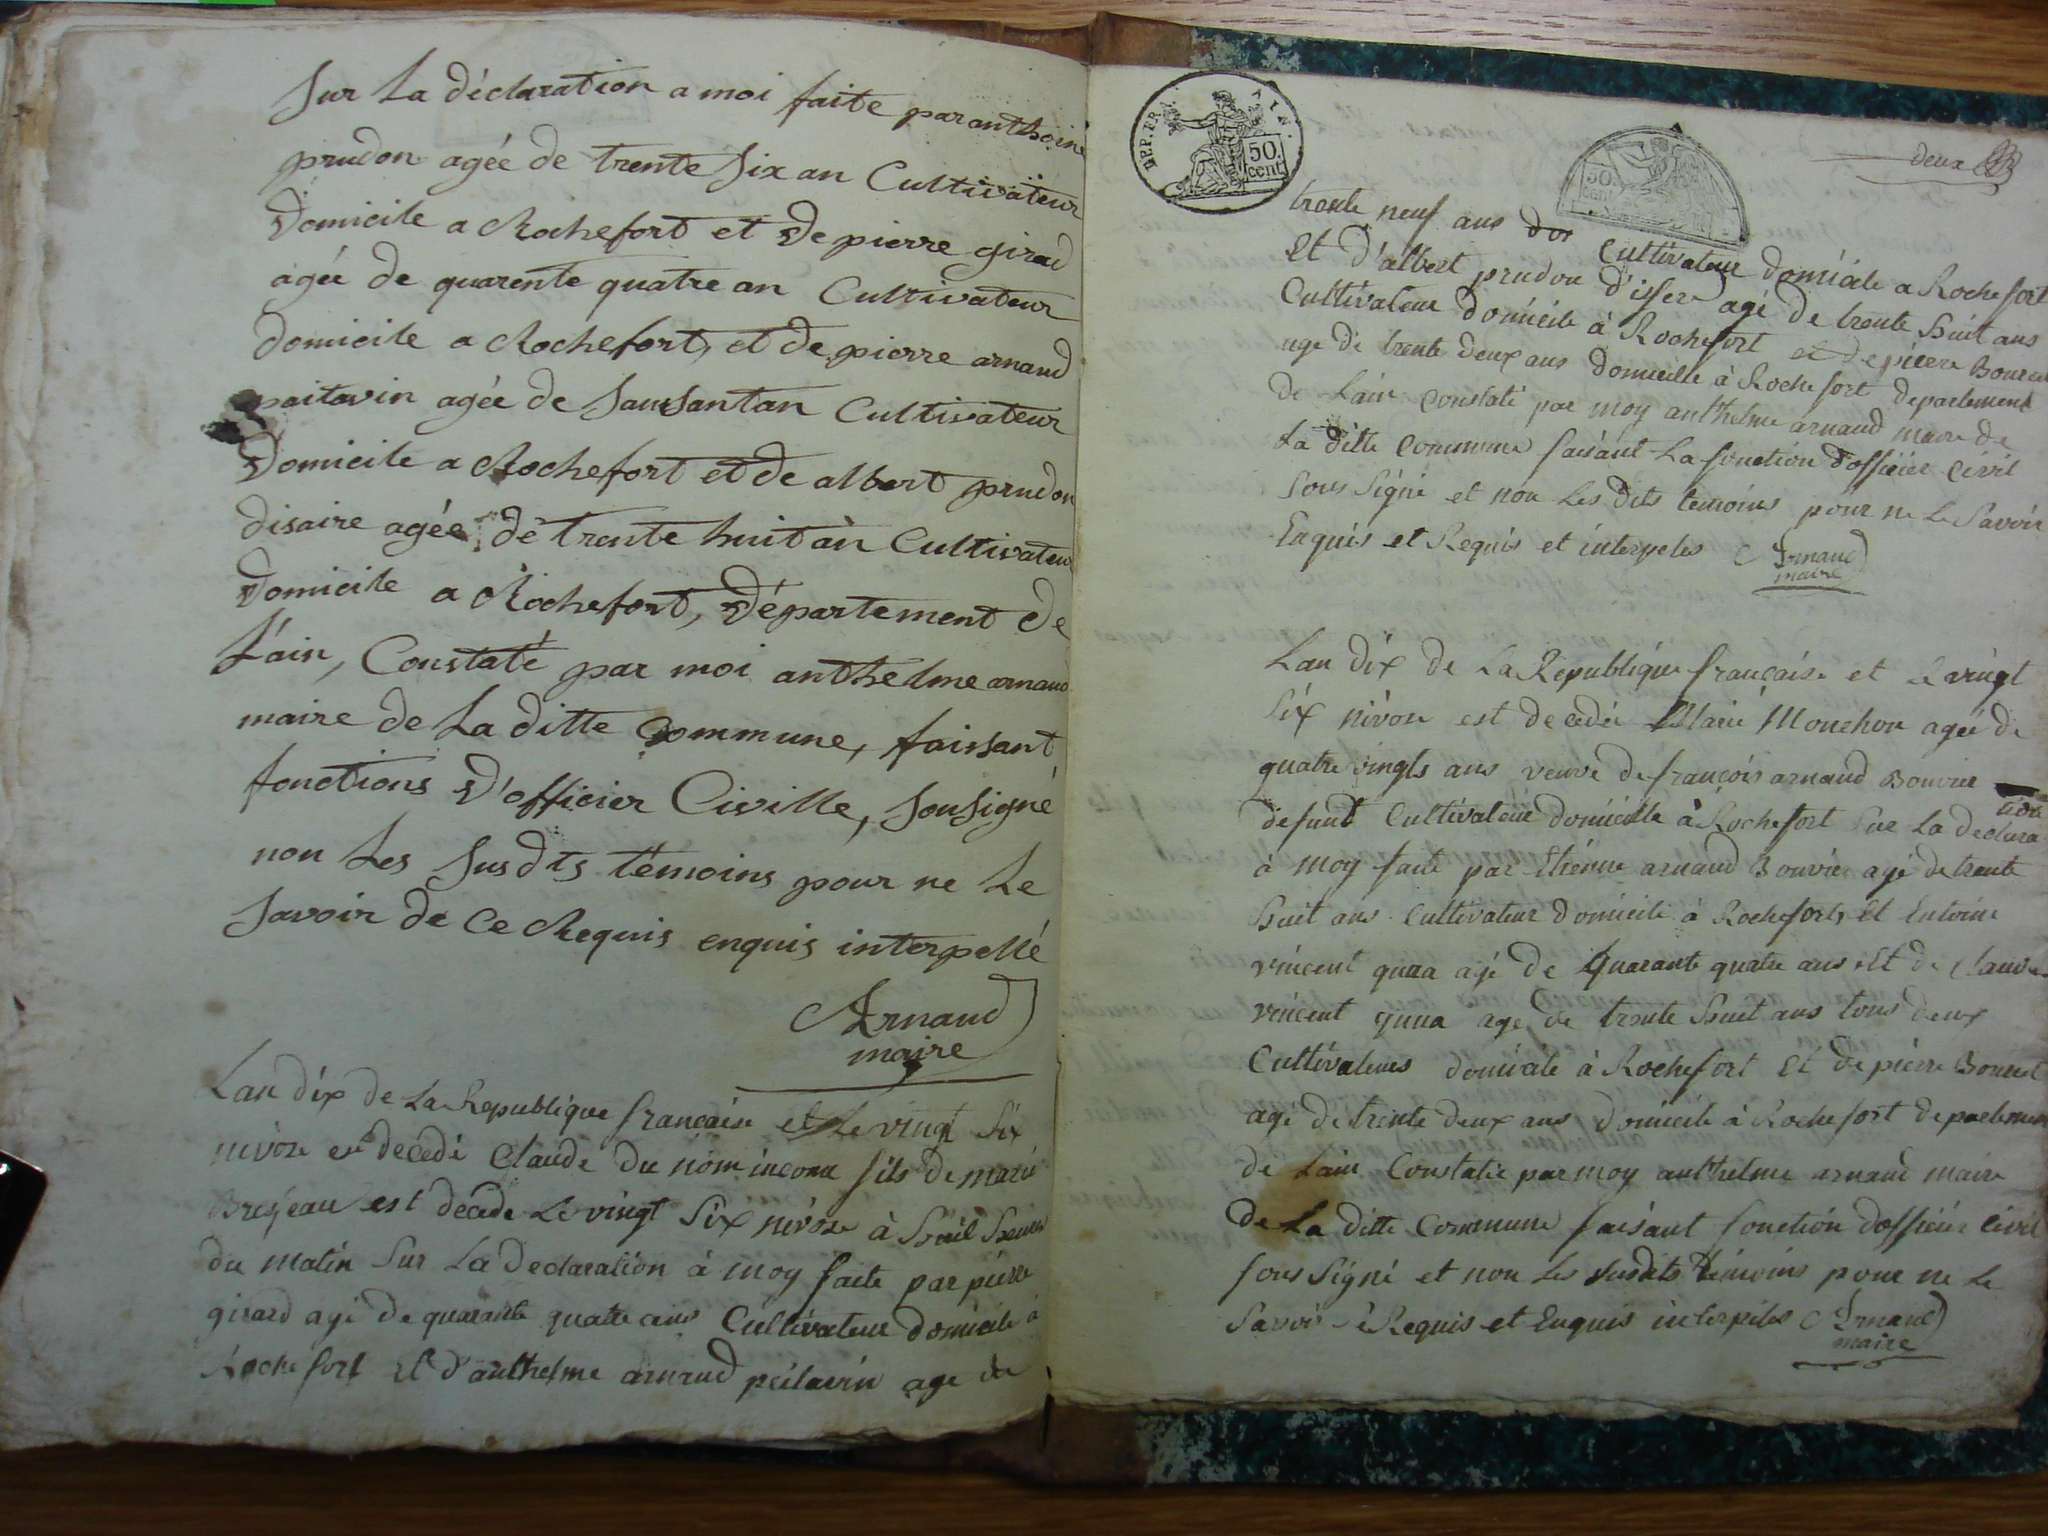 Sur La déclaration a moi faite par anthoine
prudon agée de trente Six an Cultivateur
Domicile a Rochefort et De pierre girad
agée de quarente quatre an Cultivateur
domicile a Rochefort, et de pierre arnaud
paitavin agée de Sausantan Cultivateur
Domicile a Rochefort et de albert prudon
disaire agée de trente huit an Cultivateur
Domicile a Rochefort, Département de
L'ain, Constaté par moi anthelme arnaud
maire de La ditte Commune, faissant
fonctions D'officier Civille, Sousigné
non Les Susdts témoins pour ne Le
Savoir de Ce Requis enquis interpellé
Arnaud
maire
Lan dix de La Republique francaise et Le vingt Six
nivose est decedé Claude du nom inconu fils de marie
est decede Le vingt Six nivose à Huit Heures
du matin Sur La Declaration à moy faite par pierre
girard agé de quarante quatre ans Cultivateur domicile à
Rochefort Et d'anthelme arnaud peitavin age de
DEP. FR. AIN.
50 cent
50 cent
deux
trente neuf ans dos Cultivateur domicile a Rochefort
Et d'albert prudon d'issere agé de trente Huit ans
Cultivateur domicile à Rochefort et de pierre Bonnet
age de trente deux ans domicille à Rochefort departement
de Lain Constaté par moy anthelme arnaud maire de
La ditte Commune faisant La fonction dofficier Civil
Sous Signé et non Les dits temoins pour ne Le Savoir
Enquis et Requis et interpeles Arnaud
maire
Lan dix de La Republique francaise et Le vingt
Six nivose est decedée Marie Mouchon agée de
quatre vingts ans veuve de francois arnaud Bouvier
defunt Cultivateur domicille à Rochefort Sur La declara
tion
à moy faite par Etienne arnaud Bouvier agé de trente
Huit ans Cultivateur domicile à Rochefort, Et Entoine
vincent agé de Quarante quatre ans Et de Claude
vincent age de trente Huit ans tous deux
Cultivateurs domicile à Rochefort Et de pierre Bonnet
agé de trente deux ans domicile à Rochefort departement
de Lain Constatée par moy anthelme arnaud maire
De La ditte Commune faisant fonction dofficier Civil
Sous Signé et non Les Susdits temoins pour ne Le
Savoir Requis et Enquis interpeles Arnaud
maire